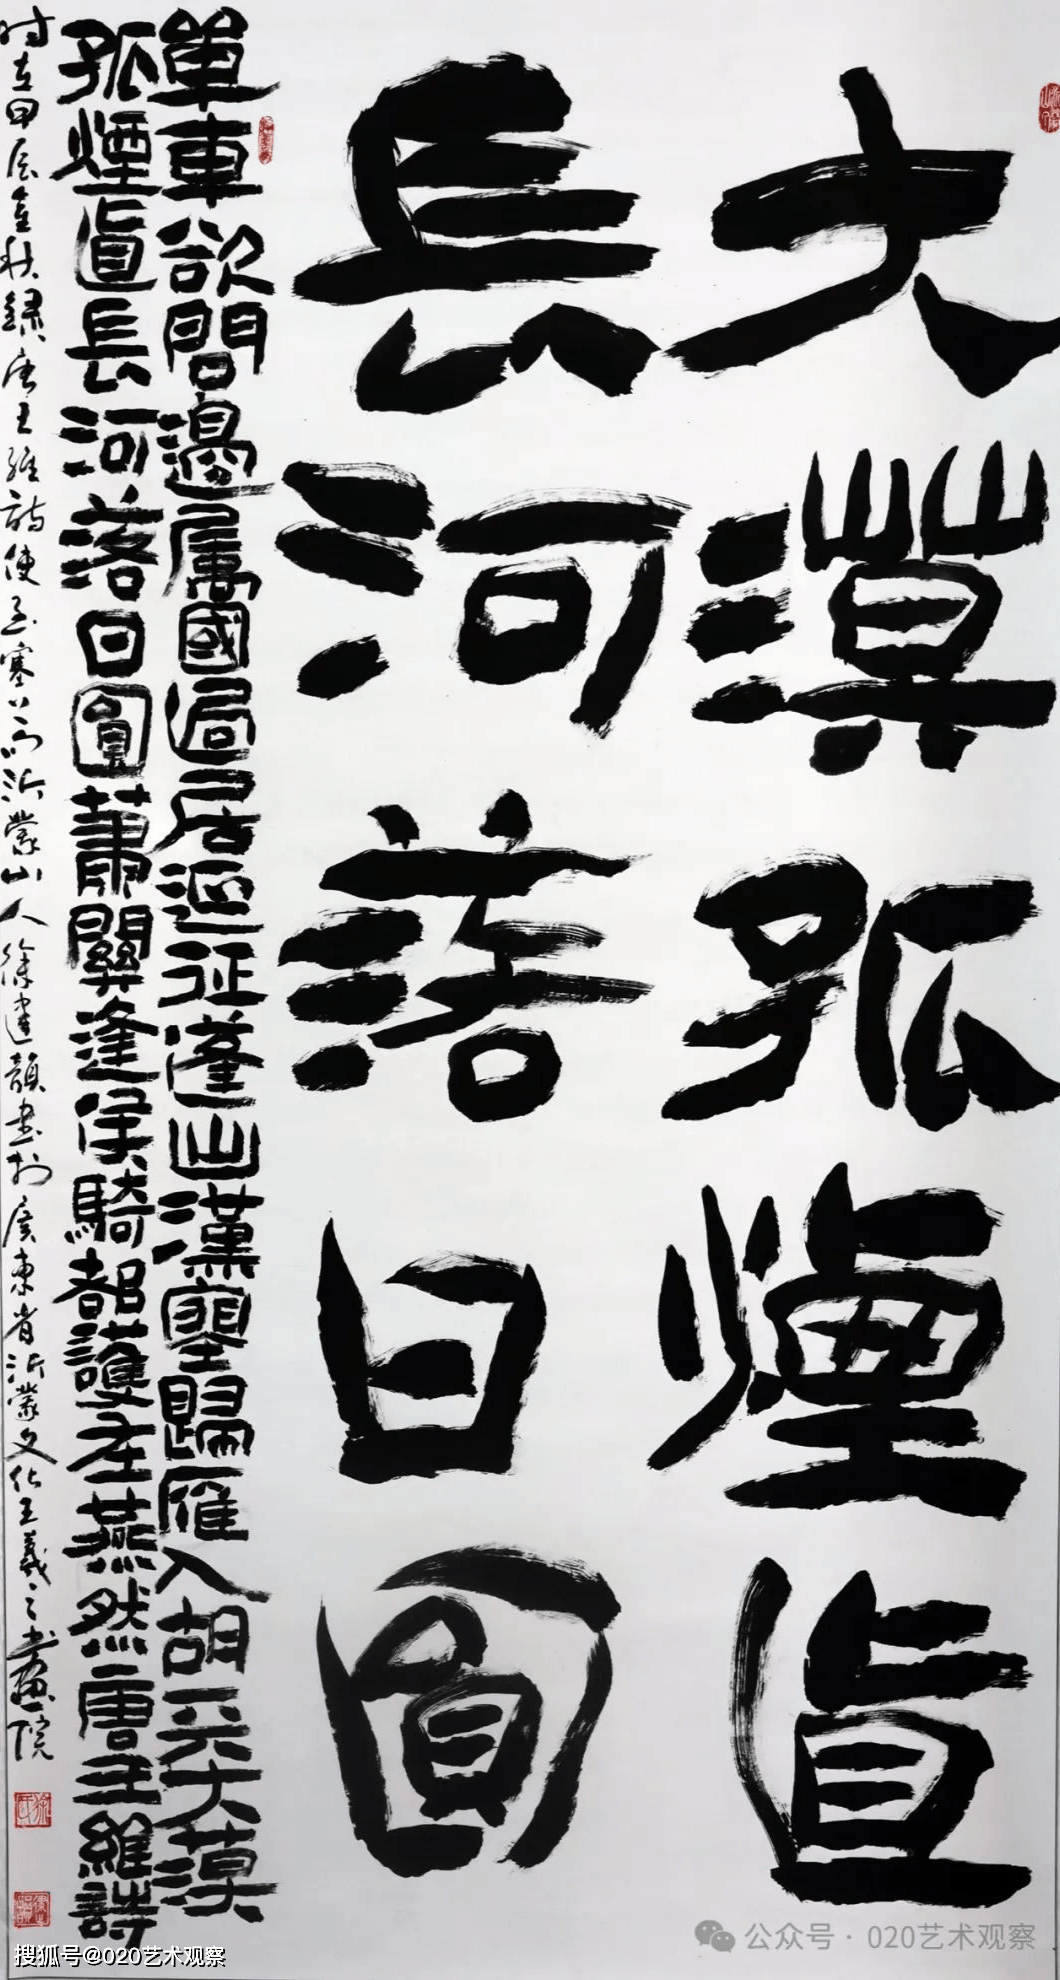 大漠孤煙直
長河落日圓
單車欲問邊屬國過居延征蓬出漢塞歸雁入胡天大漠
孤煙直長河落日圓蕭關逢侯騎都護在燕然唐王維詩
时在甲辰金秋錄唐王維詩使至塞上 沂蒙山人徐建 书於廣東省沂蒙文化王羲之書畫院
搜狐号@020艺术观察
公众号·020艺术观察